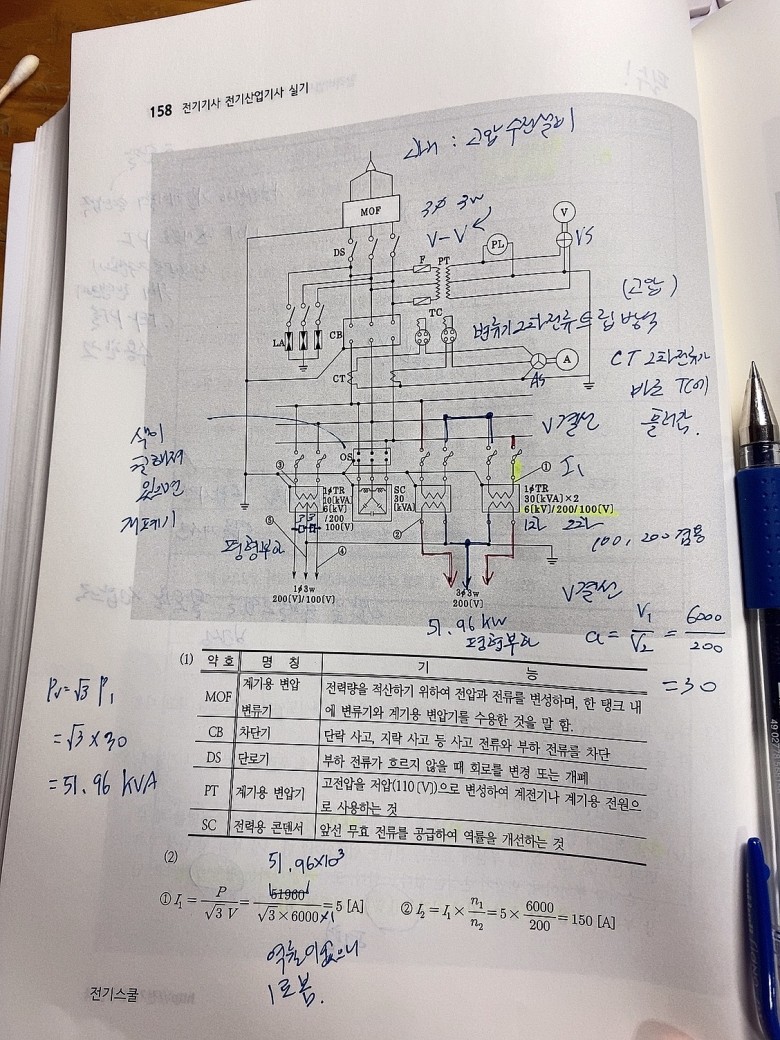 158 전기기사 전기산업기사 실기
고압 수전설비
MOF
3ø 3w
V-V
DS
F PT
PL
V
VS
TC
(고압)
변류기 2차 전류 트립 방식
LA
CB
CT
As
A
CT 2차 전류가
바로 TC에
흘러감.
V결선
OS
③
1øTR
10[kVA]
6[kV]
/200
100[V]
SC
30
[kVA]
①
I₁
1øTR
30[kVA]×2
6[kV]/200/100[V]
1차 2차
②
100, 200 겸용
⑤
④
평형부하
1ø3w
200[V]/100[V]
3ø3w
200[V]
V결선
51.96 kW
평형부하
a = V₁/V₂ = 6000/200
= 30
(1)
약 호 명 칭 기 능
MOF 계기용 변압 변류기 전력량을 적산하기 위하여 전압과 전류를 변성하며, 한 탱크 내
에 변류기와 계기용 변압기를 수용한 것을 말 함.
CB 차단기 단락 사고, 지락 사고 등 사고 전류와 부하 전류를 차단
DS 단로기 부하 전류가 흐르지 않을 때 회로를 변경 또는 개폐
PT 계기용 변압기 고전압을 저압(110[V])으로 변성하여 계전기나 계기용 전원으
로 사용하는 것
SC 전력용 콘덴서 앞선 무효 전류를 공급하여 역률을 개선하는 것
Pv = √3 P₁
= √3 × 30
= 51.96 kVA
(2)
51.96×10³
① I₁ = P/√3 V = 51960/√3×6000×1 = 5 [A]
② I₂ = I₁ × n₁/n₂ = 5 × 6000/200 = 150 [A]
역률이 없으니
1로 봄.
전기스쿨